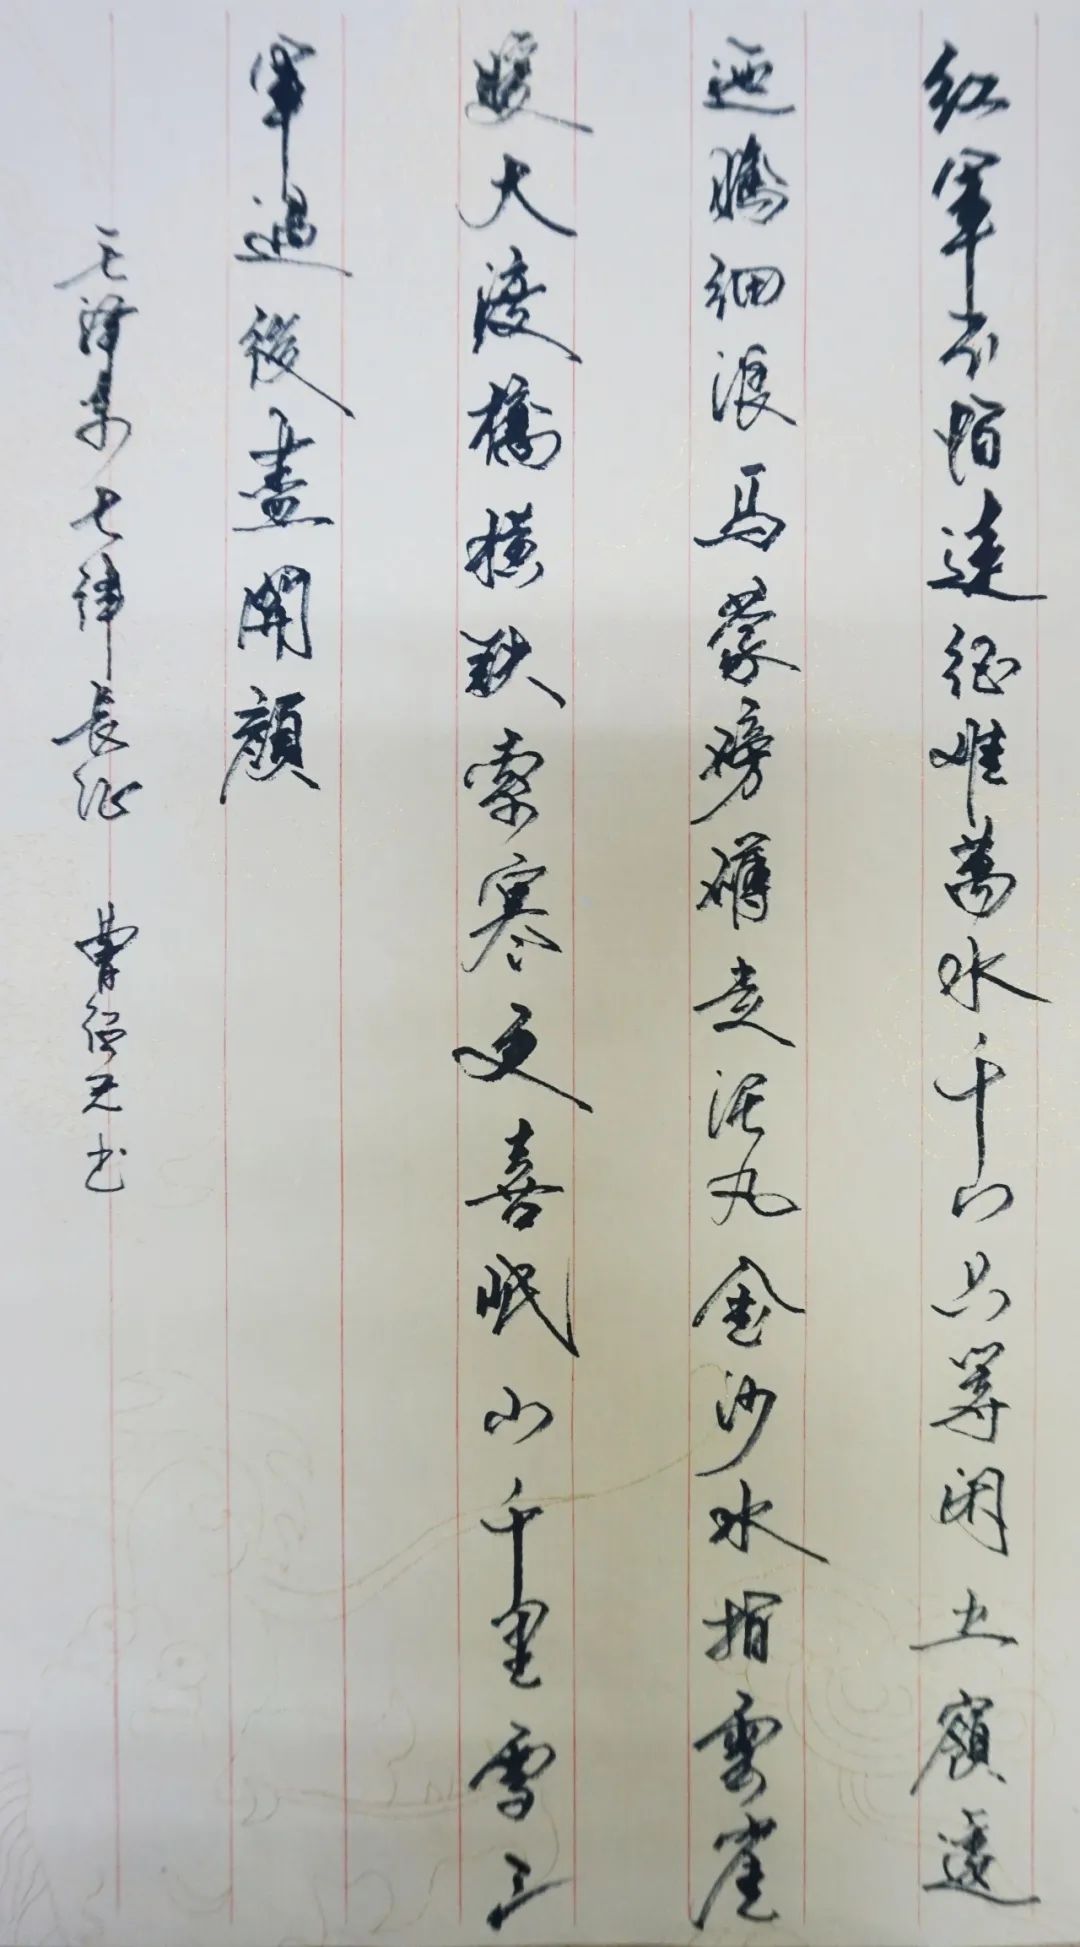 红軍不怕遠征难萬水千山只等闲五嶺逶
迤騰细浪乌蒙磅礴走泥丸金沙水拍雲崖
暖大渡橋横鉄索寒更喜岷山千里雪三
軍過後盡開顔
毛泽东七律長征 曹书